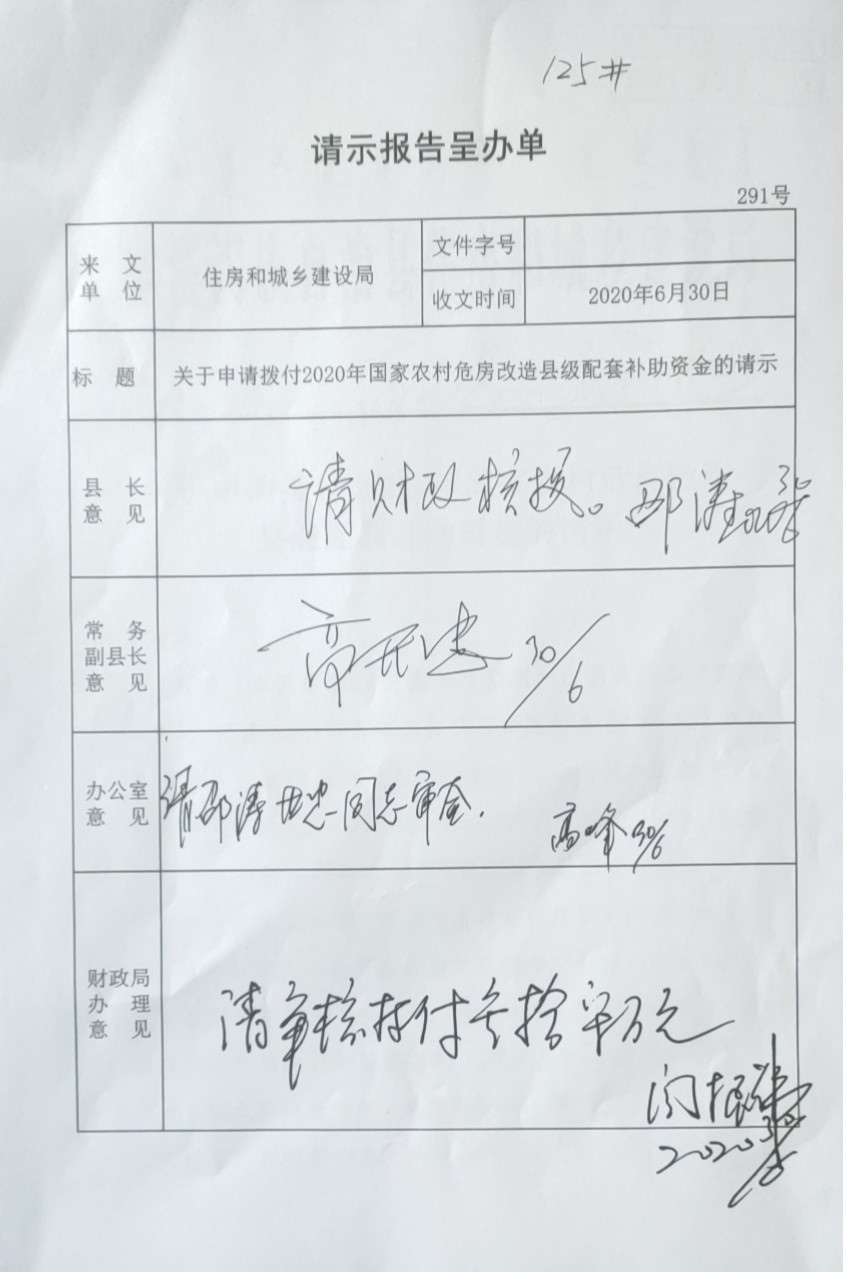 125#
请示报告呈办单
291号
来 文
单 位
住房和城乡建设局
文件字号
收文时间
2020年6月30日
标 题
关于申请拨付2020年国家农村危房改造县级配套补助资金的请示
县 长
意 见
请财政核拨。邵涛
常 务
副县长
意 见
30/6
办公室
意 见
请邵涛 世忠同志审查.
高峰 30/6
财政局
办 理
意 见
请审核拨付 拾 万元
2020